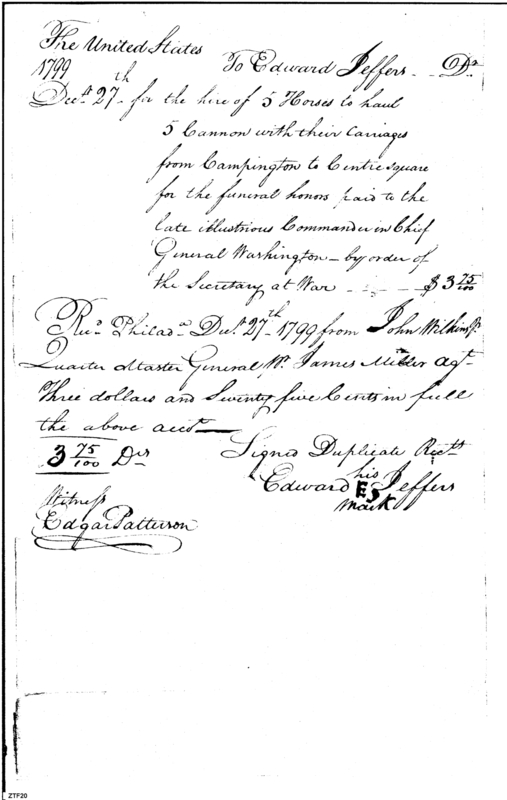 The United States
1799 To Edward Jeffers - Dr
Decr. 27th for the hire of 5 Horses to haul
5 Cannon with their Carriages
from Campington to Centre Square
for the funeral honors paid to the
late illustrious Commander in Chief
General Washington - by order of
the Secretary at War - - - $ 3 75/100
Recd. Philada. Decr. 27th 1799 from John Wilkins Jr.
Quarter Master General Pr. James Miller agt.
Three dollars and Seventy five Cents in full
the above acct.
3 75/100 Drs
Signed Duplicate Rects
his
Edward E J Jeffers
mark
Witness
Edgar Patterson
ZTF20